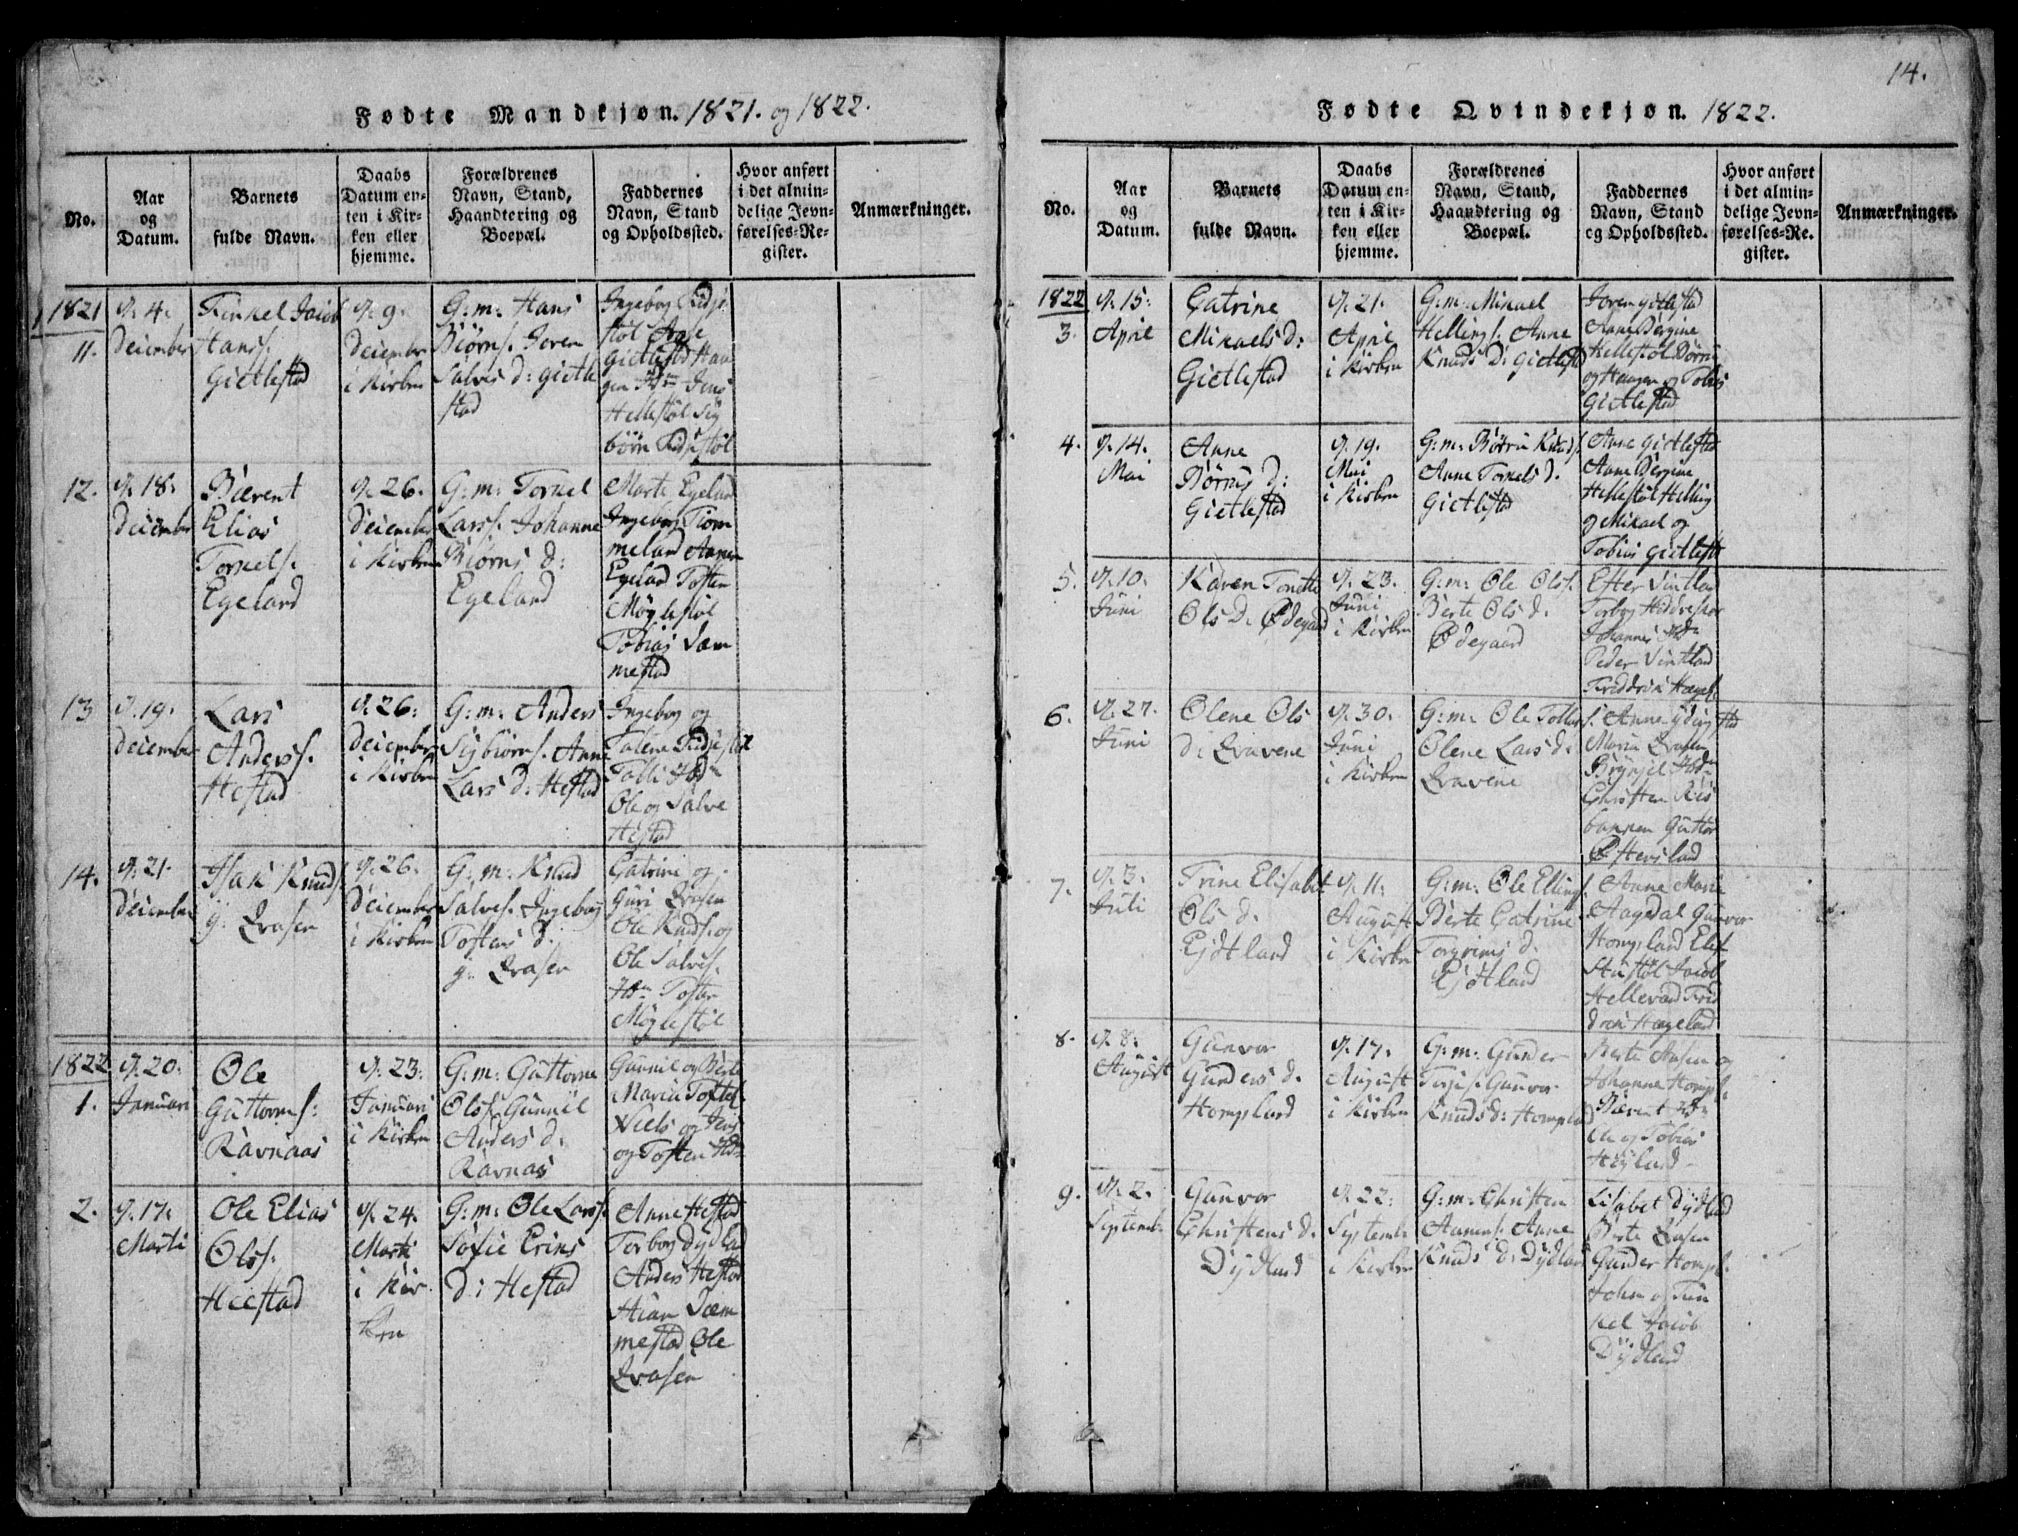 14.
Fødte Mandkjøn. 1821. og 1822.
No.
Aar
og
Datum.
Barnets
fulde Navn.
Daabs
Datum en-
ten i Kir-
ken eller
hjemme.
Forældrenes
Navn, Stand,
Haandtering og
Boepæl.
Faddernes
Navn, Stand
og Opholdssted.
Hvor anført
i det almin-
delige Jevn-
førelses-Re-
gister.
Anmærkninger.
1821
11.
d. 4.
December
Jacob
Hanss.
Gietlestad
d. 9.
December
i Kirken
G: m: Hans
Biørns. Joren
Salves d: Gietle
stad
Ingebog
Gietlestad
Jens
Hellestøl
12.
d. 18.
December
Bærent
Elias
Torkels.
Egeland
d. 26.
December
i Kirken
G: m: Torkel
Larss. Johanne
Biørns d:
Egeland
Marte Egeland
Ingebog Tiom
meland
Egelad Tosten
Møglestøl
Tobias Væm
mestad
13
d. 19.
December
Lars
Anderss.
Hestad
d. 26:
December
i Kirken
G: m: Anders
Sigbiørns. Anne
Lars d: Hestad
Ingebog og
Talene
Ole og Salve
Hestad
14.
d. 21.
December
Isak Knuds.
Qvasen
d. 26.
December
i Kirken
G: m: Knud
Salves. Ingebog
Tostens d.
Qvasen
Catrine og
Guri Qvasen
Ole Knuds. og
Ole Salves.
Tosten
Møglestøl
1822
1.
d. 20:
Januari
Ole
Guttorms:
Ravnaas
d. 23:
Januari
i Kirken
G: m: Guttorm
Ols. Gunnil
Anders d.
Ravnas
Gunnil og Berte
Maria
Niels og Jens
og Tosten
2.
d. 17.
Marti
Ole Elias
Ols.
Heestad
d. 24.
Marti
i Kir
ken
G: m: Ole Larss.
Sofie Erins
D: Hestad
Anne Hestad
Torbog Dydlad
Anders Hestad
Stian Væm
mestad Ole
Qvasen
Fødte Qvindekjøn. 1822.
No.
Aar
og
Datum.
Barnets
fulde Navn.
Daabs
Datum en-
ten i Kir-
ken eller
hjemme.
Forældrenes
Navn, Stand,
Haandtering og
Boepæl.
Faddernes
Navn, Stand
og Opholdssted.
Hvor anført
i det almin-
delige Jevn-
førelses-Re-
gister.
Anmærkninger.
1822
3.
d. 15:
April
Catrine
Mikaels d:
Gietlestad
d. 21.
April
i Kirken
G: m: Mikael
Hellings. Anne
Knuds D: Gietlestd
Joren Gietlestad
Anne Bergine
Hellestøl Børni
og Haagen og Tobias
Gietlestad
4.
d. 14.
Mai
Anne
Børnis d:
Gietlestad
d. 19.
Mai
i Kirken
G: m: Børni Knuds.
Anne Torkels d.
Gietlestad
Anne Gietlestad
Anne Bergine
Hellestøl Helling
og Mikael og
Tobias Gietlestd
5.
d. 10:
Juni
Karen Tonette
Ols D. Ødegaard
d. 23.
Juni
i Kirken
G: m: Ole Ols.
Berte Ols d.
Ødegaard
Ester Vintlan
Torbog
Johannes
Peder Vintland
6.
d. 27.
Juni
Olene Ols
d: Qvavene
d. 30.
Juni
i Kirken
G: m: Ole Tolles
Olene Lars d.
Qvavene
Anne
Maria Qvasen
Christen Ris
banken Guttor
Østersland
7.
d. 3.
Juli
Trine Elisabet
Ols d.
Eydtland
d. 11.
August
i Kirken
G: m: Ole Ellings.
Berte Catrine
Torgrims d.
Ejdtland
Anne Marie
Aagdal Gunvor
Hompland
Jacob
Hellevand
Hægeland
8.
d. 8.
August
Gunvor
Gunders d.
Hompland
d. 17.
August
i Kirken
G: m: Gunder
Terjes. Gunvor
Knuds d: Hompland
Berte Aasen og
Johanne Hompl.
Bærent
Ole og Tobias
Høyland
9.
d. 2.
Septemb.
Gunvor
Christens d.
Dydland
d. 22:
Septemb.
i Kirken
G: m: Christen
Aanens. Anne
Knuds d: Dydland
Lisabet Dydlad
Berte Qvasen
Gunder Hompl.
John og
Jacob
Dydland